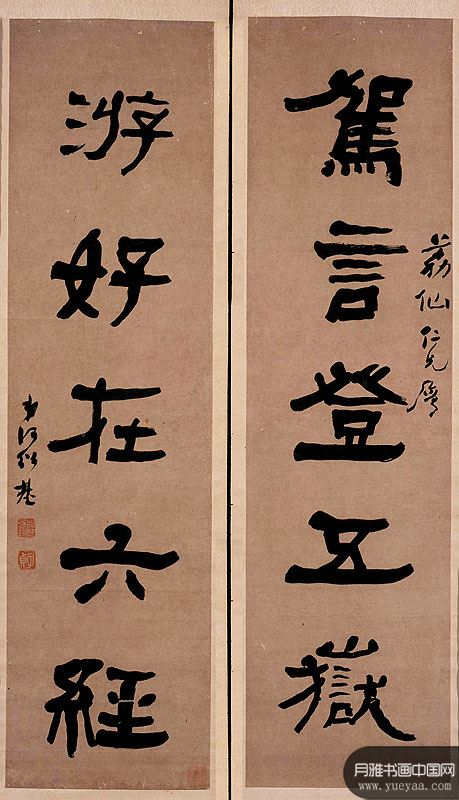 駕言登五嶽
荔仙仁兄属
游好在六經
弟何紹基
月雅书画中国网
www.yueyaa.com